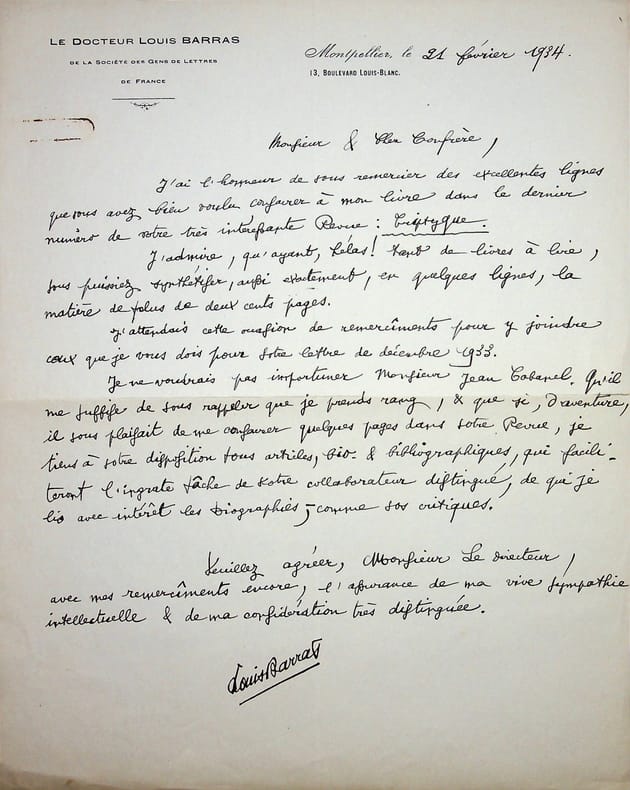 LE DOCTEUR LOUIS BARRAS
DE LA SOCIÉTÉ DES GENS DE LETTRES
DE FRANCE
Montpellier, le 21 février 1934.
13, BOULEVARD LOUIS-BLANC.
Monsieur & Cher Confrère,
J'ai l'honneur de vous remercier des excellentes lignes
que vous avez bien voulu consacrer à mon livre dans le dernier
numéro de votre très intéressante Revue : Triptyque.
J'admire, qu'ayant, hélas! tant de livres à lire,
vous puissiez synthétiser, aussi exactement, en quelques lignes, la
matière de plus de deux cents pages.
J'attendais cette occasion de remercîments pour y joindre
ceux que je vous dois pour votre lettre de décembre 1933.
Je ne voudrais pas importuner Monsieur Jean Cabanel. Qu'il
me suffise de vous rappeler que je prends rang, & que si, d'aventure,
il vous plaisait de me consacrer quelques pages dans votre Revue, je
tiens à votre disposition tous articles, bio- & bibliographiques, qui facili-
teront l'ingrate tâche de votre collaborateur distingué, de qui je
lis avec intérêt les biographies, comme vos critiques.
Veuillez agréer, Monsieur Le directeur,
avec mes remercîments encore, l'assurance de ma vive sympathie
intellectuelle & de ma considération très distinguée.
Louis Barras